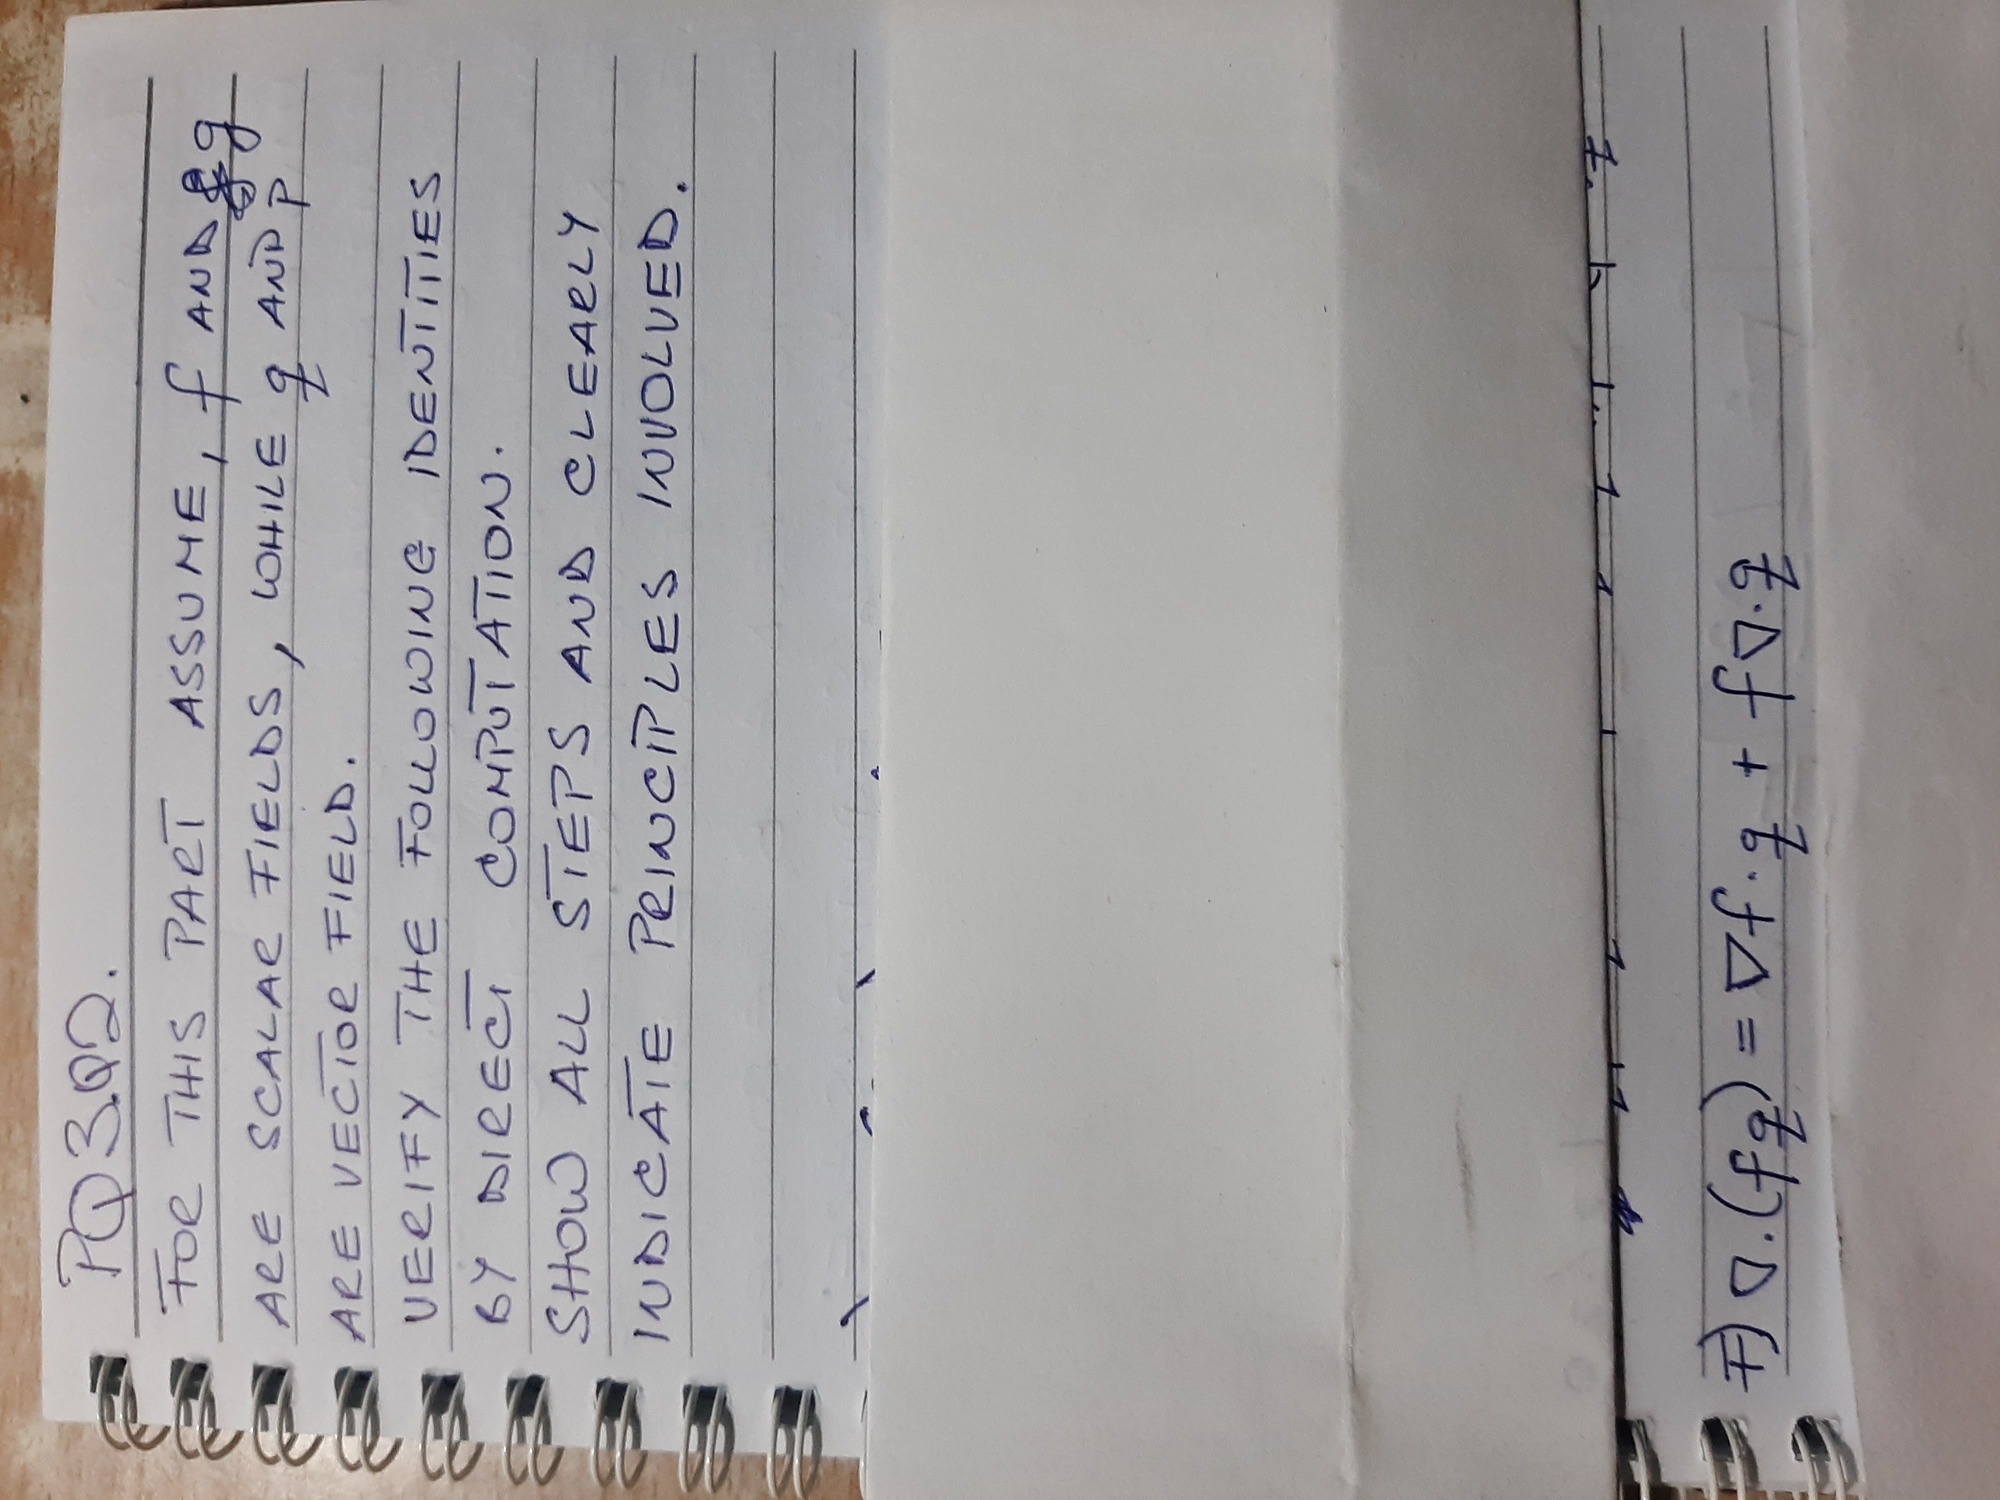 PQ3.Q2.
FOR THIS PART ASSUME, f AND g
ARE SCALAR FIELDS, WHILE q AND P
ARE VECTOR FIELD.
VERIFY THE FOLLOWING IDENTITIES
BY DIRECT COMPUTATION.
SHOW ALL STEPS AND CLEARLY
INDICATE PRINCIPLES INVOLVED.
F) ∇.(fq) = ∇f.q + f∇.q